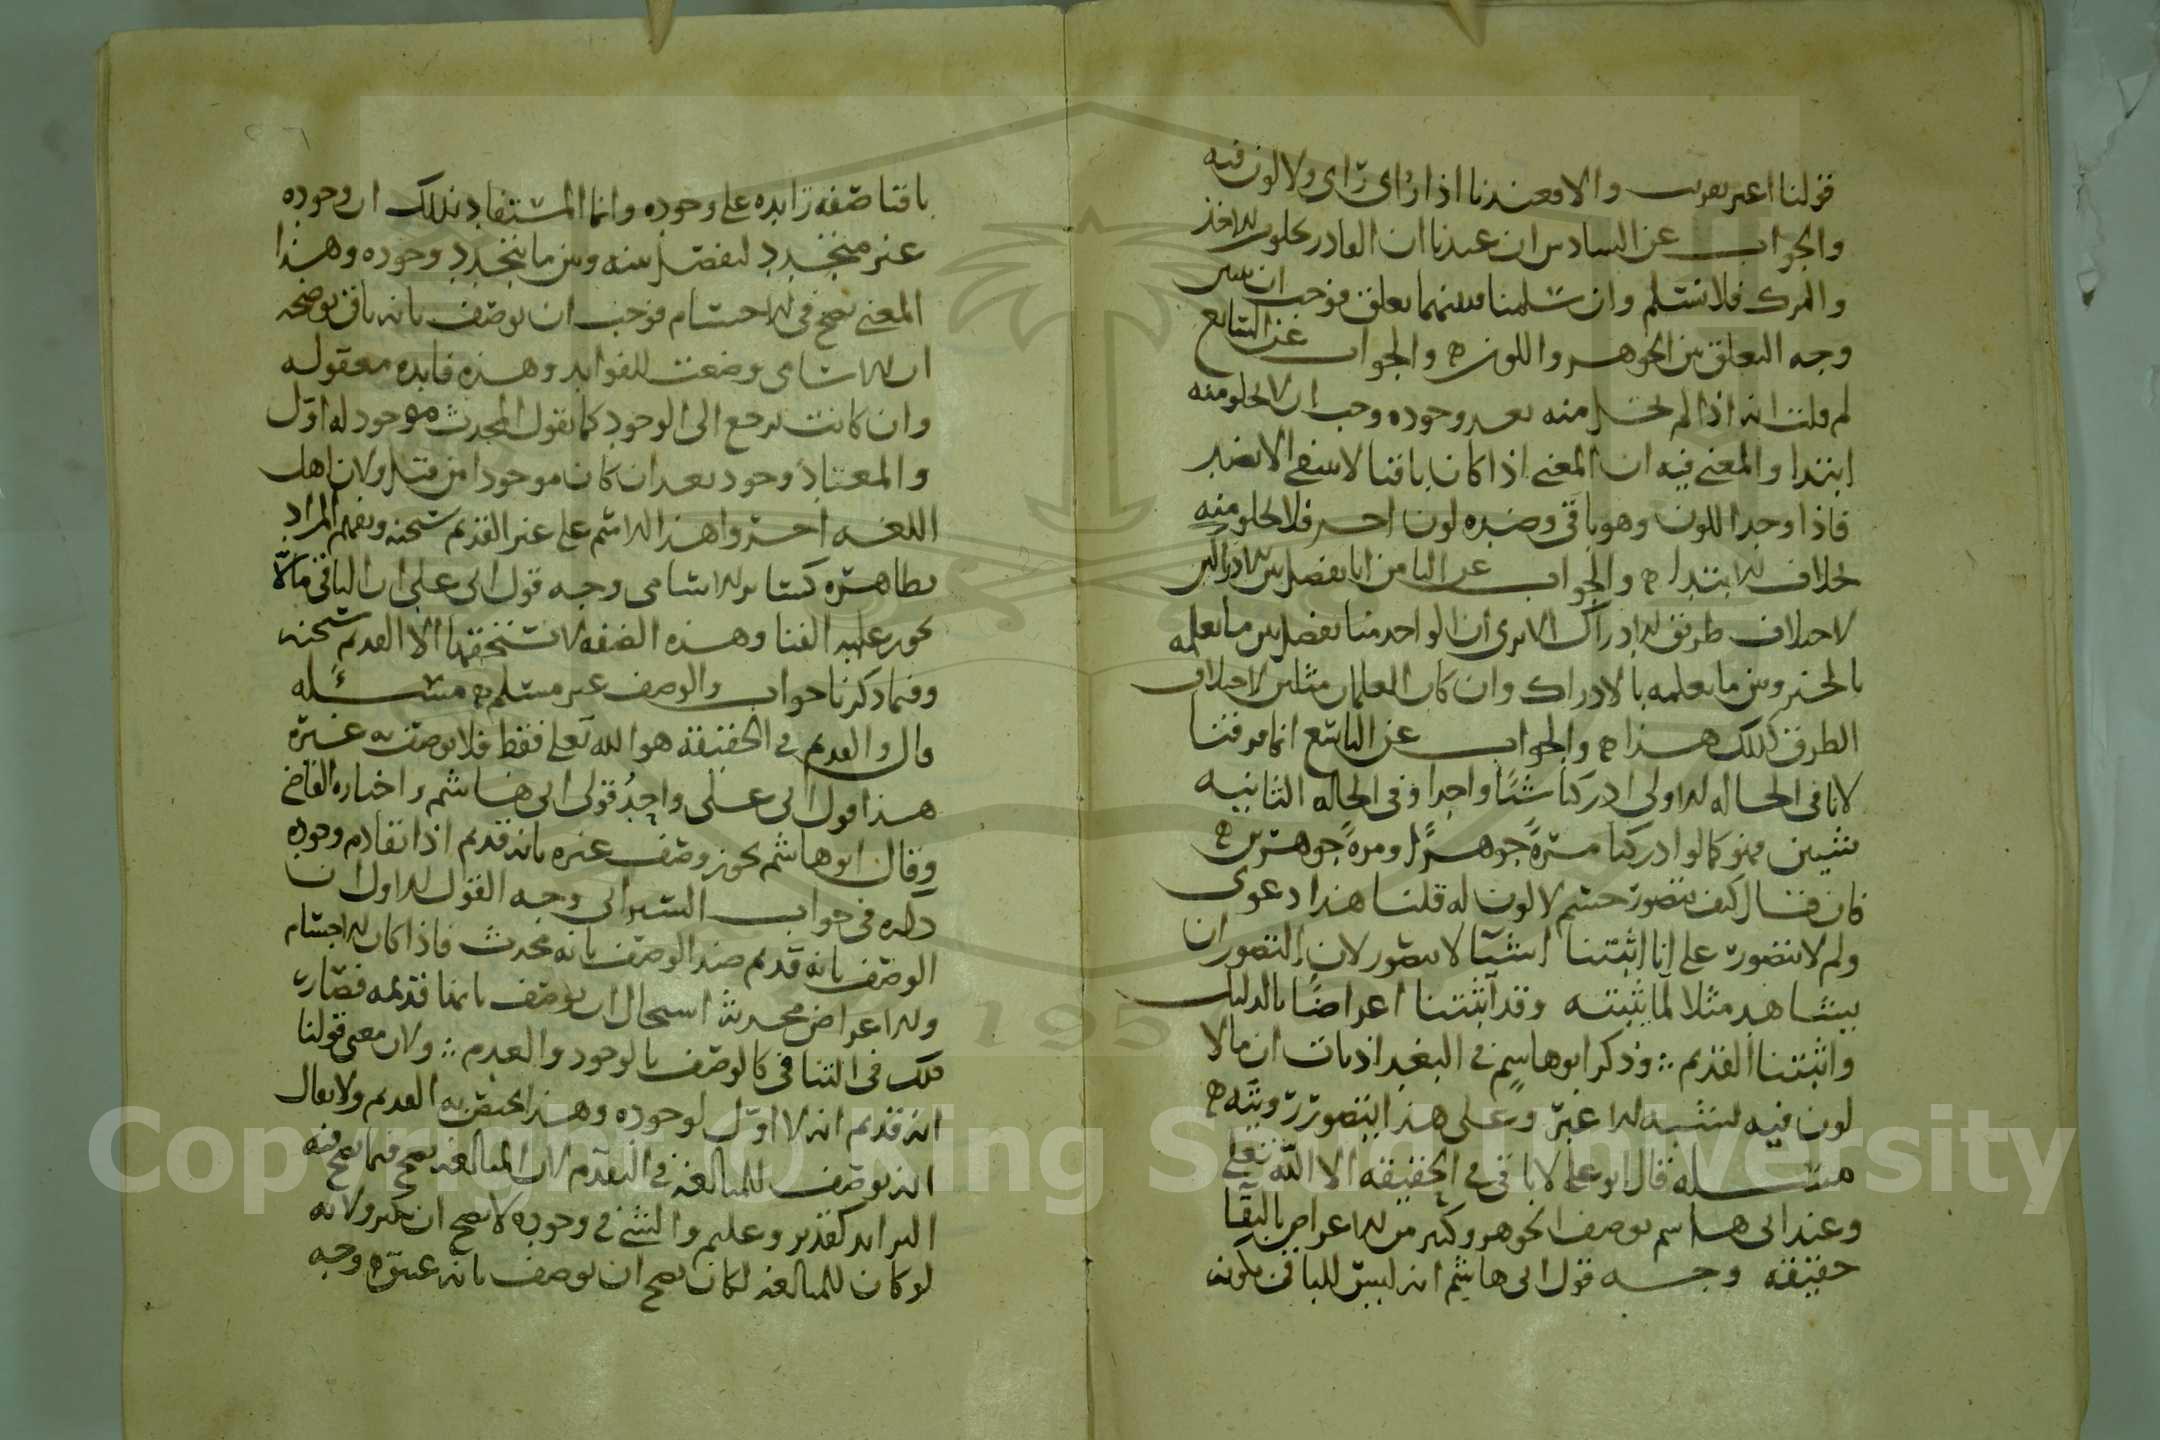 قولنا اغبر والا فعندنا اذا رأى رأى ولا لون فيه
والجواب عن السادس ان عندنا ان القادر يخلو من الاخذ
والترك فلا نسلم وان سلمنا فبينهما تعلق فوجب ان تبين
وجه التعلق بين الجوهر واللون والجواب عن السابع
لم قلت انه اذا لم يخل منه بعد وجوده وجب ان لا يخلو منه
ابتدا والمعنى فيه ان المعنى اذا كان باقيا لا ينتفى الا بضد
فاذا وجد اللون وهو باقى وضده لون اخر فلا يخلو منه
بخلاف الابتدا والجواب عن الثامن انا نفصل بين الادراكين
لاختلاف طريق الادراك الا ترى ان الواحد منا يفصل بين ما يعلمه
بالخبر وبين ما يعلمه بالادراك وان كان العلمان مثلين لاختلاف
الطرق كذلك هذا والجواب عن التاسع انما فرقنا
لانا فى الحاله الاولى ادركنا شيئا واحدا وفى الحاله الثانيه
شيئين فهو كما لو ادركنا مرة جوهرا ومرة جوهرين
فان قال كيف يتصور جسم لا لون له قلنا هذا دعوى
ولم لا يتصور على انا اثبتنا اشيآ لا يتصور لان التصور ان
يشاهد مثلا لما يثبته وقد اثبتنا اعراضا بالدليل
واثبتنا القديم وذكر ابو هاشم في البغداذيات ان ما لا
لون فيه يشبه الاغبر وعلى هذا يتصور رؤيته
مسئله قال ابو على لا باقى في الحقيقه الا الله تعلى
وعند ابى هاشم يوصف الجوهر وكثير من الاعراض بالبقآ
حقيقه وجه قول ابى هاشم انه ليس للباقى بكونه
باقيا صفه زايده على وجوده وانما المستفاد بذلك ان وجوده
غير متجدد ليفصل بينه وبين ما يتجدد وجوده وهذا
المعنى يصح فى الاجسام فوجب ان توصف بانه باقى يوضحه
ان الاسامى وضعت للفوايد وهذه فايده معقوله
وان كانت ترجع الى الوجود كما نقول المحدث موجود له اول
والمعتاد وجود بعد ان كان موجودا من قبل ولان اهل
اللغه اجروا هذا الاسم على غير القديم سبحنه ويفهم المراد
بظاهره كساير الاسامى وجه قول ابى على ان الباقى ما لا
يجوز عليه الفنا وهذه الصفه لا يستحقها الا القديم سبحنه
وفيما ذكرنا جواب والوصف غير مسلم مسئله
قال والقديم في الحقيقه هو الله تعلى فقط فلا يوصف به غيره
هذا قول ابى على واحد قولى ابى هاشم واختاره القاضى
وقال ابو هاشم يجوز وصف غيره بانه قديم اذا تقادم وجوده
ذكره فى جواب السيرافى وجه القول الاول ان
الوصف بانه قديم ضد الوصف بانه محدث فاذا كان الاجسام
والاعراض محدثة استحال ان يوصف بانها قديمه فصار
ذلك فى التنافى كالوصف بالوجود والعدم ولان معنى قولنا
انه قديم انه لا اول لوجوده وهذا يختص به القديم ولا يقال
انه يوصف للمبالغه في التقدم لان المبالغه تصح فيما يصح فيه
التزايد كقدير وعليم والشئ في وجوده لا يصح ان يكثر ولانه
لو كان للمبالغه لكان يصح ان يوصف بانه عتيق وجه